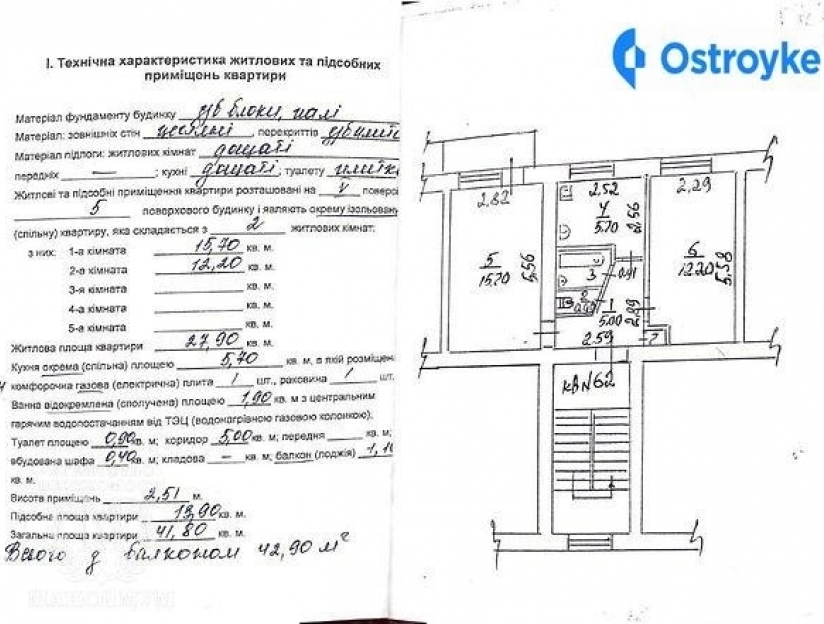 Ostroyke
I. Технічна характеристика житлових та підсобних
приміщень квартири
Матеріал фундаменту будинку з/б блоки, палі
Матеріал: зовнішніх стін цегляні, перекриттів з/б плити
Матеріал підлоги: житлових кімнат дощаті
передніх —; кухні дощаті; туалету плитка
Житлові та підсобні приміщення квартири розташовані на V поверсі
5 поверхового будинку і являють окрему ізольовану
(спільну) квартиру, яка складається з 2 житлових кімнат:
з них: 1-а кімната 15,70 кв. м.
2-а кімната 12,20 кв. м.
3-я кімната кв. м.
4-а кімната кв. м.
5-а кімната кв. м.
Житлова площа квартири 27,90 кв. м.
Кухня окрема (спільна) площею 5,70 кв. м, в якій розміщено
4 комфорочна газова (електрична) плита 1 шт., раковина 1 шт.
Ванна відокремлена (сполучена) площею 1,90 кв. м з центральним
гарячим водопостачанням від ТЭЦ (водонагрівною газовою колонкою).
Туалет площею 0,90 кв. м; коридор 5,00 кв. м; передня кв. м;
вбудована шафа 0,40 кв. м; кладова — кв. м; балкон (лоджія) 1,10
кв. м.
Висота приміщень 2,51 м.
Підсобна площа квартири 13,90 кв. м.
Загальна площа квартири 41,80 кв. м.
Всього з балконом 42,90 м²
2,82
2,52
2,29
4
5,70
2,56
5
15,70
5,56
6
12,20
5,58
3
0,91
2
0,90
1
5,00
2,89
2,59
7
кв N62